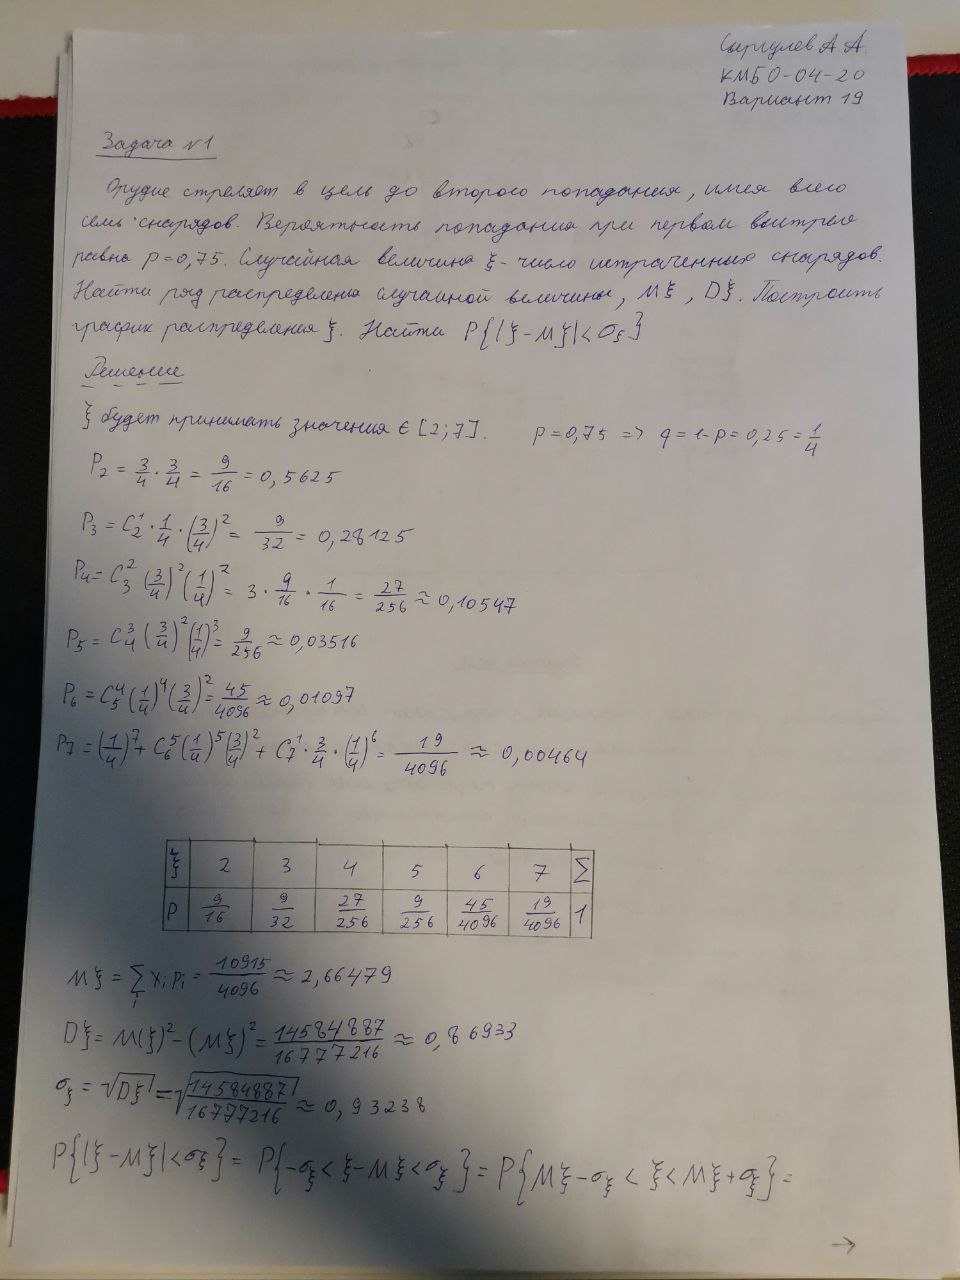 Сыргулев А А
КМБО-04-20
Вариант 19
Задача №1
Орудие стреляет в цель до второго попадания, имея всего
семь снарядов. Вероятность попадания при первом выстреле
равна p=0,75. Случайная величина ξ - число истраченных снарядов.
Найти ряд распределения случайной величины, Mξ, Dξ. Построить
график распределения ξ. Найти P{|ξ-Mξ|<σξ}
Решение
ξ будет принимать значения ∈ [2;7]. p=0,75 => q=1-p=0,25=1/4
P₂ = 3/4 · 3/4 = 9/16 = 0,5625
P₃ = C₂¹ · 1/4 · (3/4)² = 9/32 = 0,28125
P₄ = C₃² (3/4)² (1/4)² = 3 · 9/16 · 1/16 = 27/256 ≈ 0,10547
P₅ = C₄³ (3/4)² (1/4)³ = 9/256 ≈ 0,03516
P₆ = C₅⁴ (1/4)⁴ (3/4)² = 45/4096 ≈ 0,01097
P₇ = (1/4)⁷ + C₆⁵ (1/4)⁵ (3/4)² + C₇¹ · 3/4 · (1/4)⁶ = 19/4096 ≈ 0,00464
ξ 2 3 4 5 6 7 Σ
P 9/16 9/32 27/256 9/256 45/4096 19/4096 1
Mξ = Σᵢ xᵢpᵢ = 10915/4096 ≈ 2,66479
Dξ = M(ξ)² - (Mξ)² = 14584887/16777216 ≈ 0,86933
σξ = √Dξ = √14584887/16777216 ≈ 0,93238
P{|ξ-Mξ|<σξ} = P{-σξ < ξ-Mξ < σξ} = P{Mξ-σξ < ξ < Mξ+σξ} =
→